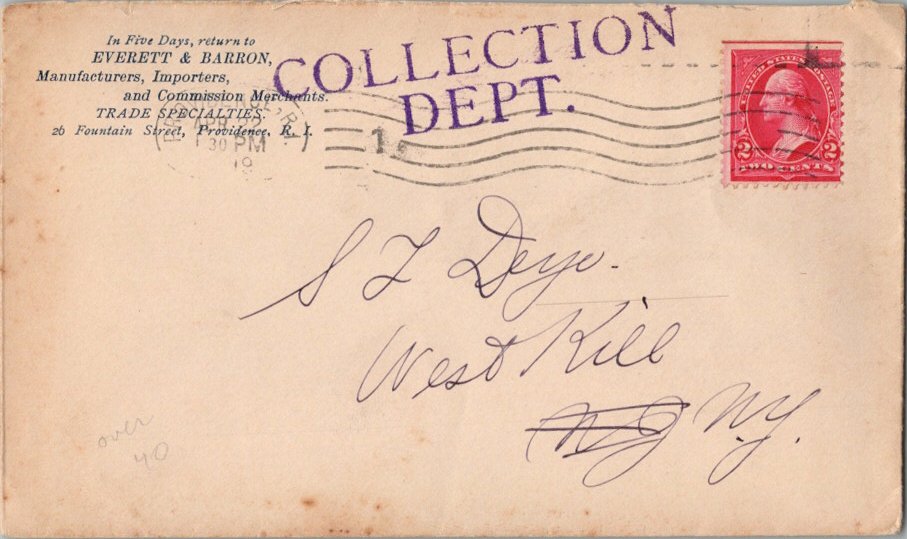 In Five Days, return to
EVERETT & BARRON,
Manufacturers, Importers,
and Commission Merchants.
TRADE SPECIALTIES.
26 Fountain Street, Providence, R. I.
COLLECTION
DEPT.
PROVIDENCE, R.I.
APR 22
30 PM
19
1
UNITED STATES POSTAGE
2 2
TWO CENTS
S L Deyo.
West Kill
N.Y.
over
40